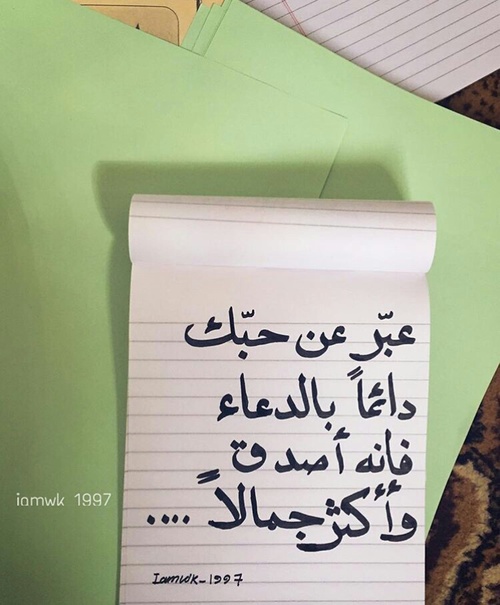 عبّر عن حبّك
دائماً بالدعاء
فانه أصدق
وأكثر جمالاً ....
Iamwk_1997
iamwk_1997